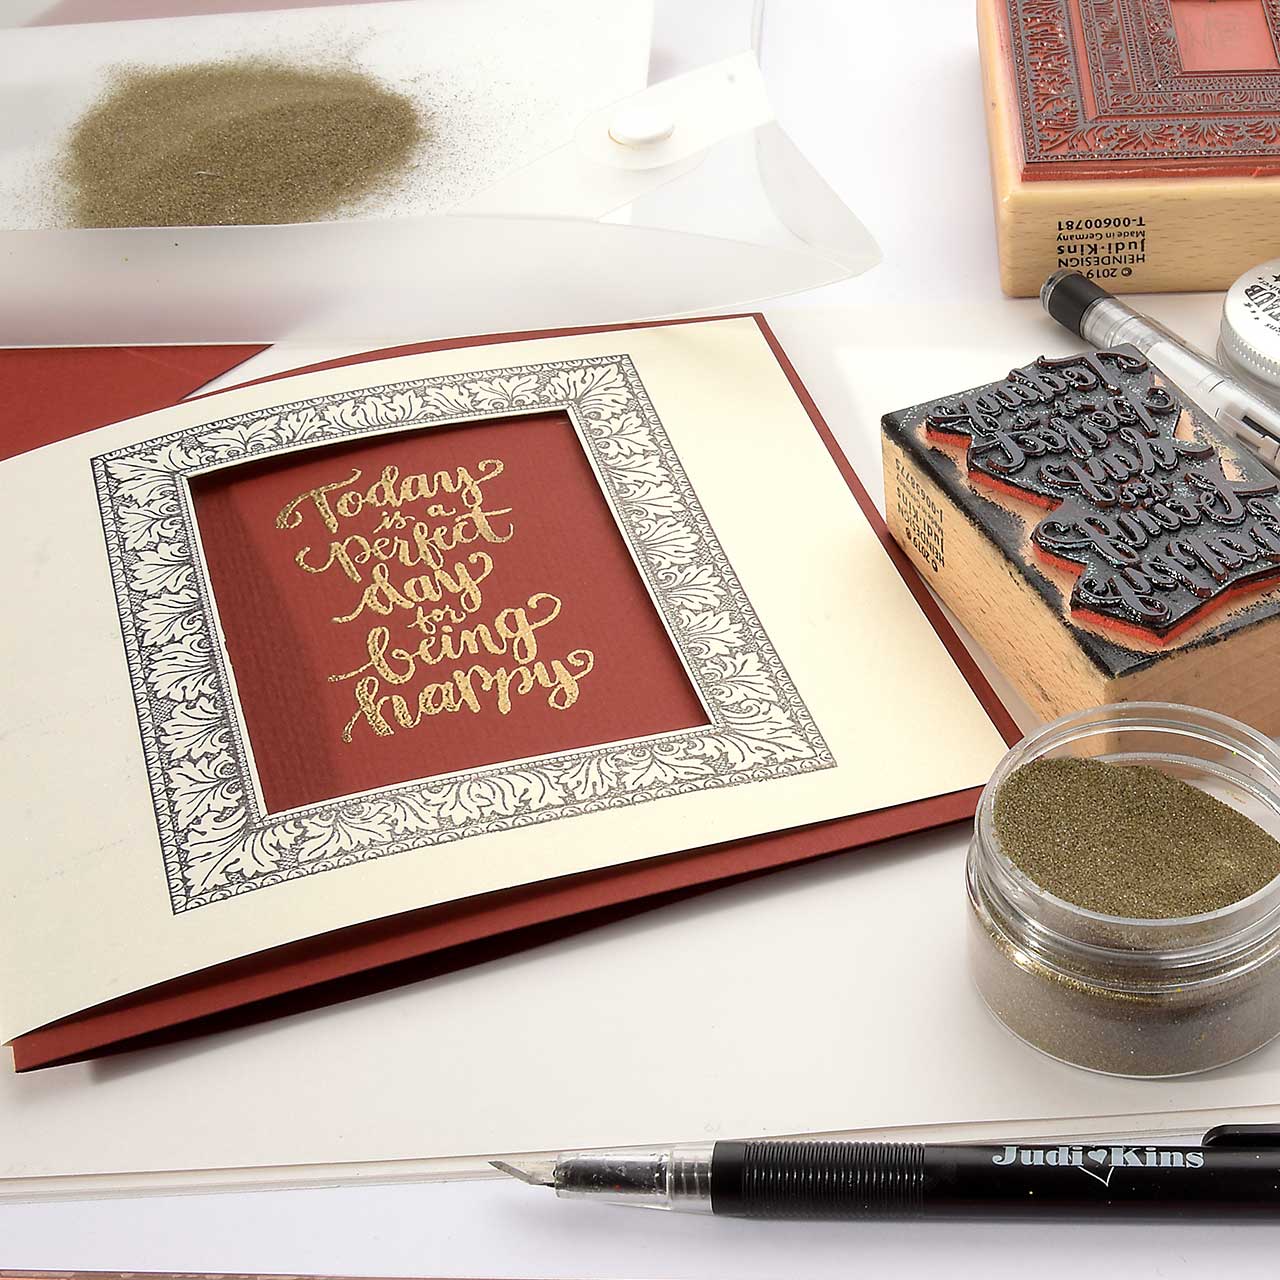 Today
is a
perfect
day
for
being
happy
© 2019
HEINDESIGN
Judi-Kins
Made in Germany
T-00600781
Judi Kins